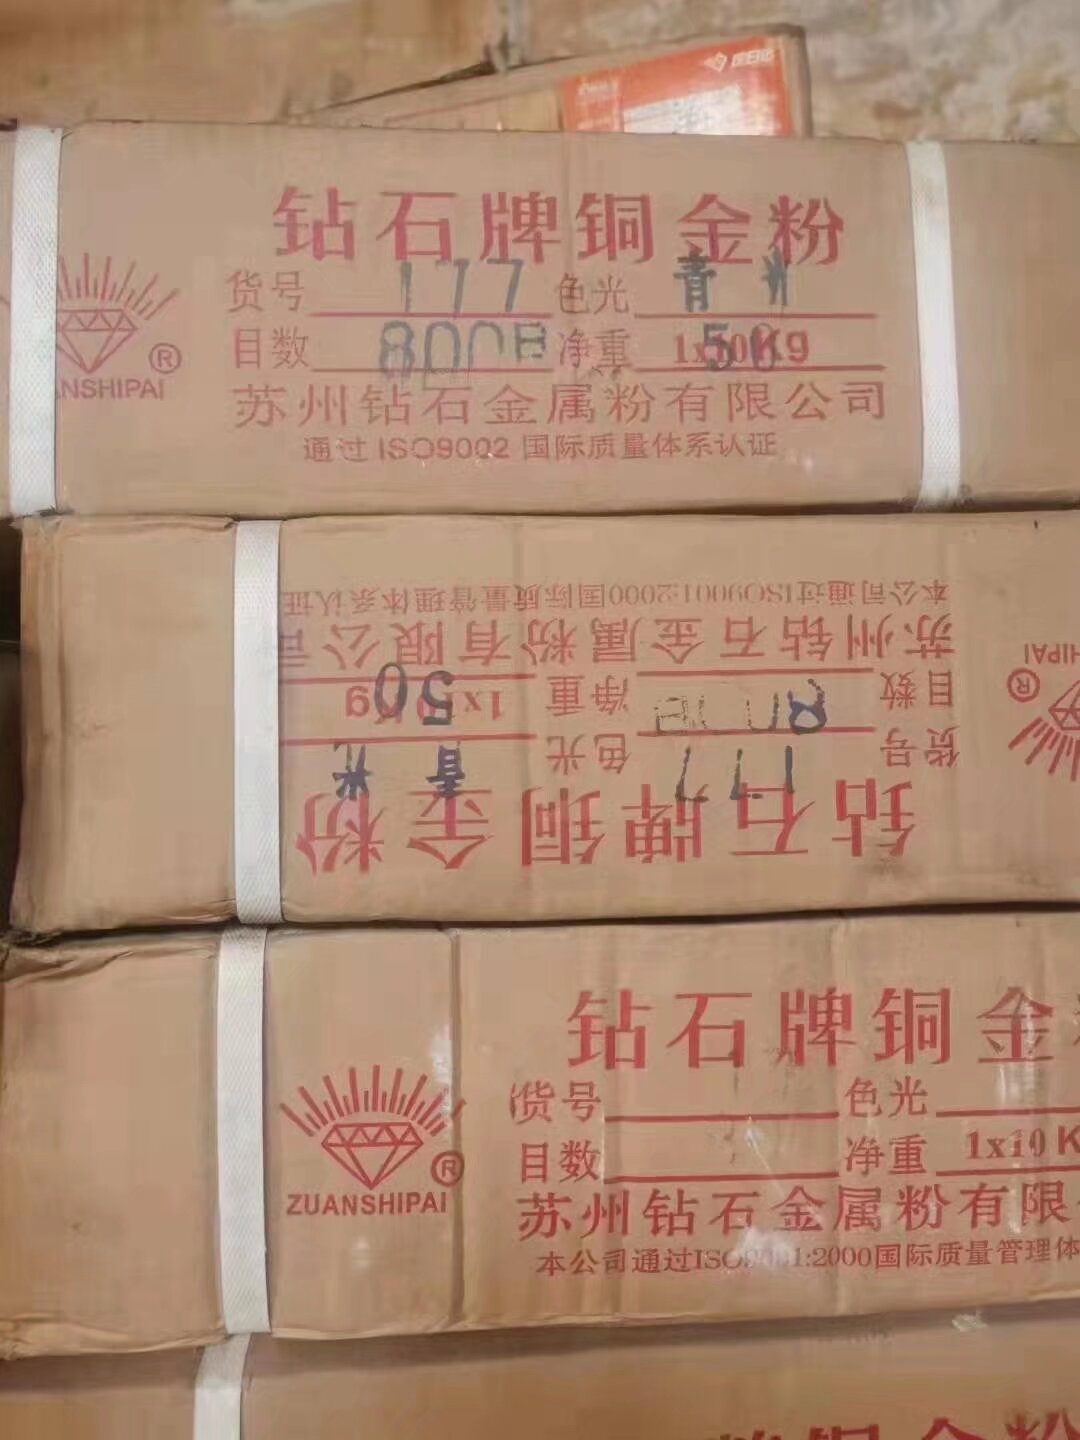 钻石牌铜金粉
货号 177 色光 青光
目数 800B 净重 1x10Kg 50
苏州钻石金属粉有限公司
通过 ISO9002 国际质量体系认证
ANSHIPAI
®
钻石牌铜金粉
货号 177 色光 青光
目数 800B 净重 1x10Kg 50
苏州钻石金属粉有限公司
本公司通过ISO9001:2000国际质量管理体系认证
HIPAI
®
钻石牌铜金
货号 色光
目数 净重 1x10 K
苏州钻石金属粉有限
本公司通过ISO9001:2000国际质量管理体
ZUANSHIPAI
®
牌铜金粉